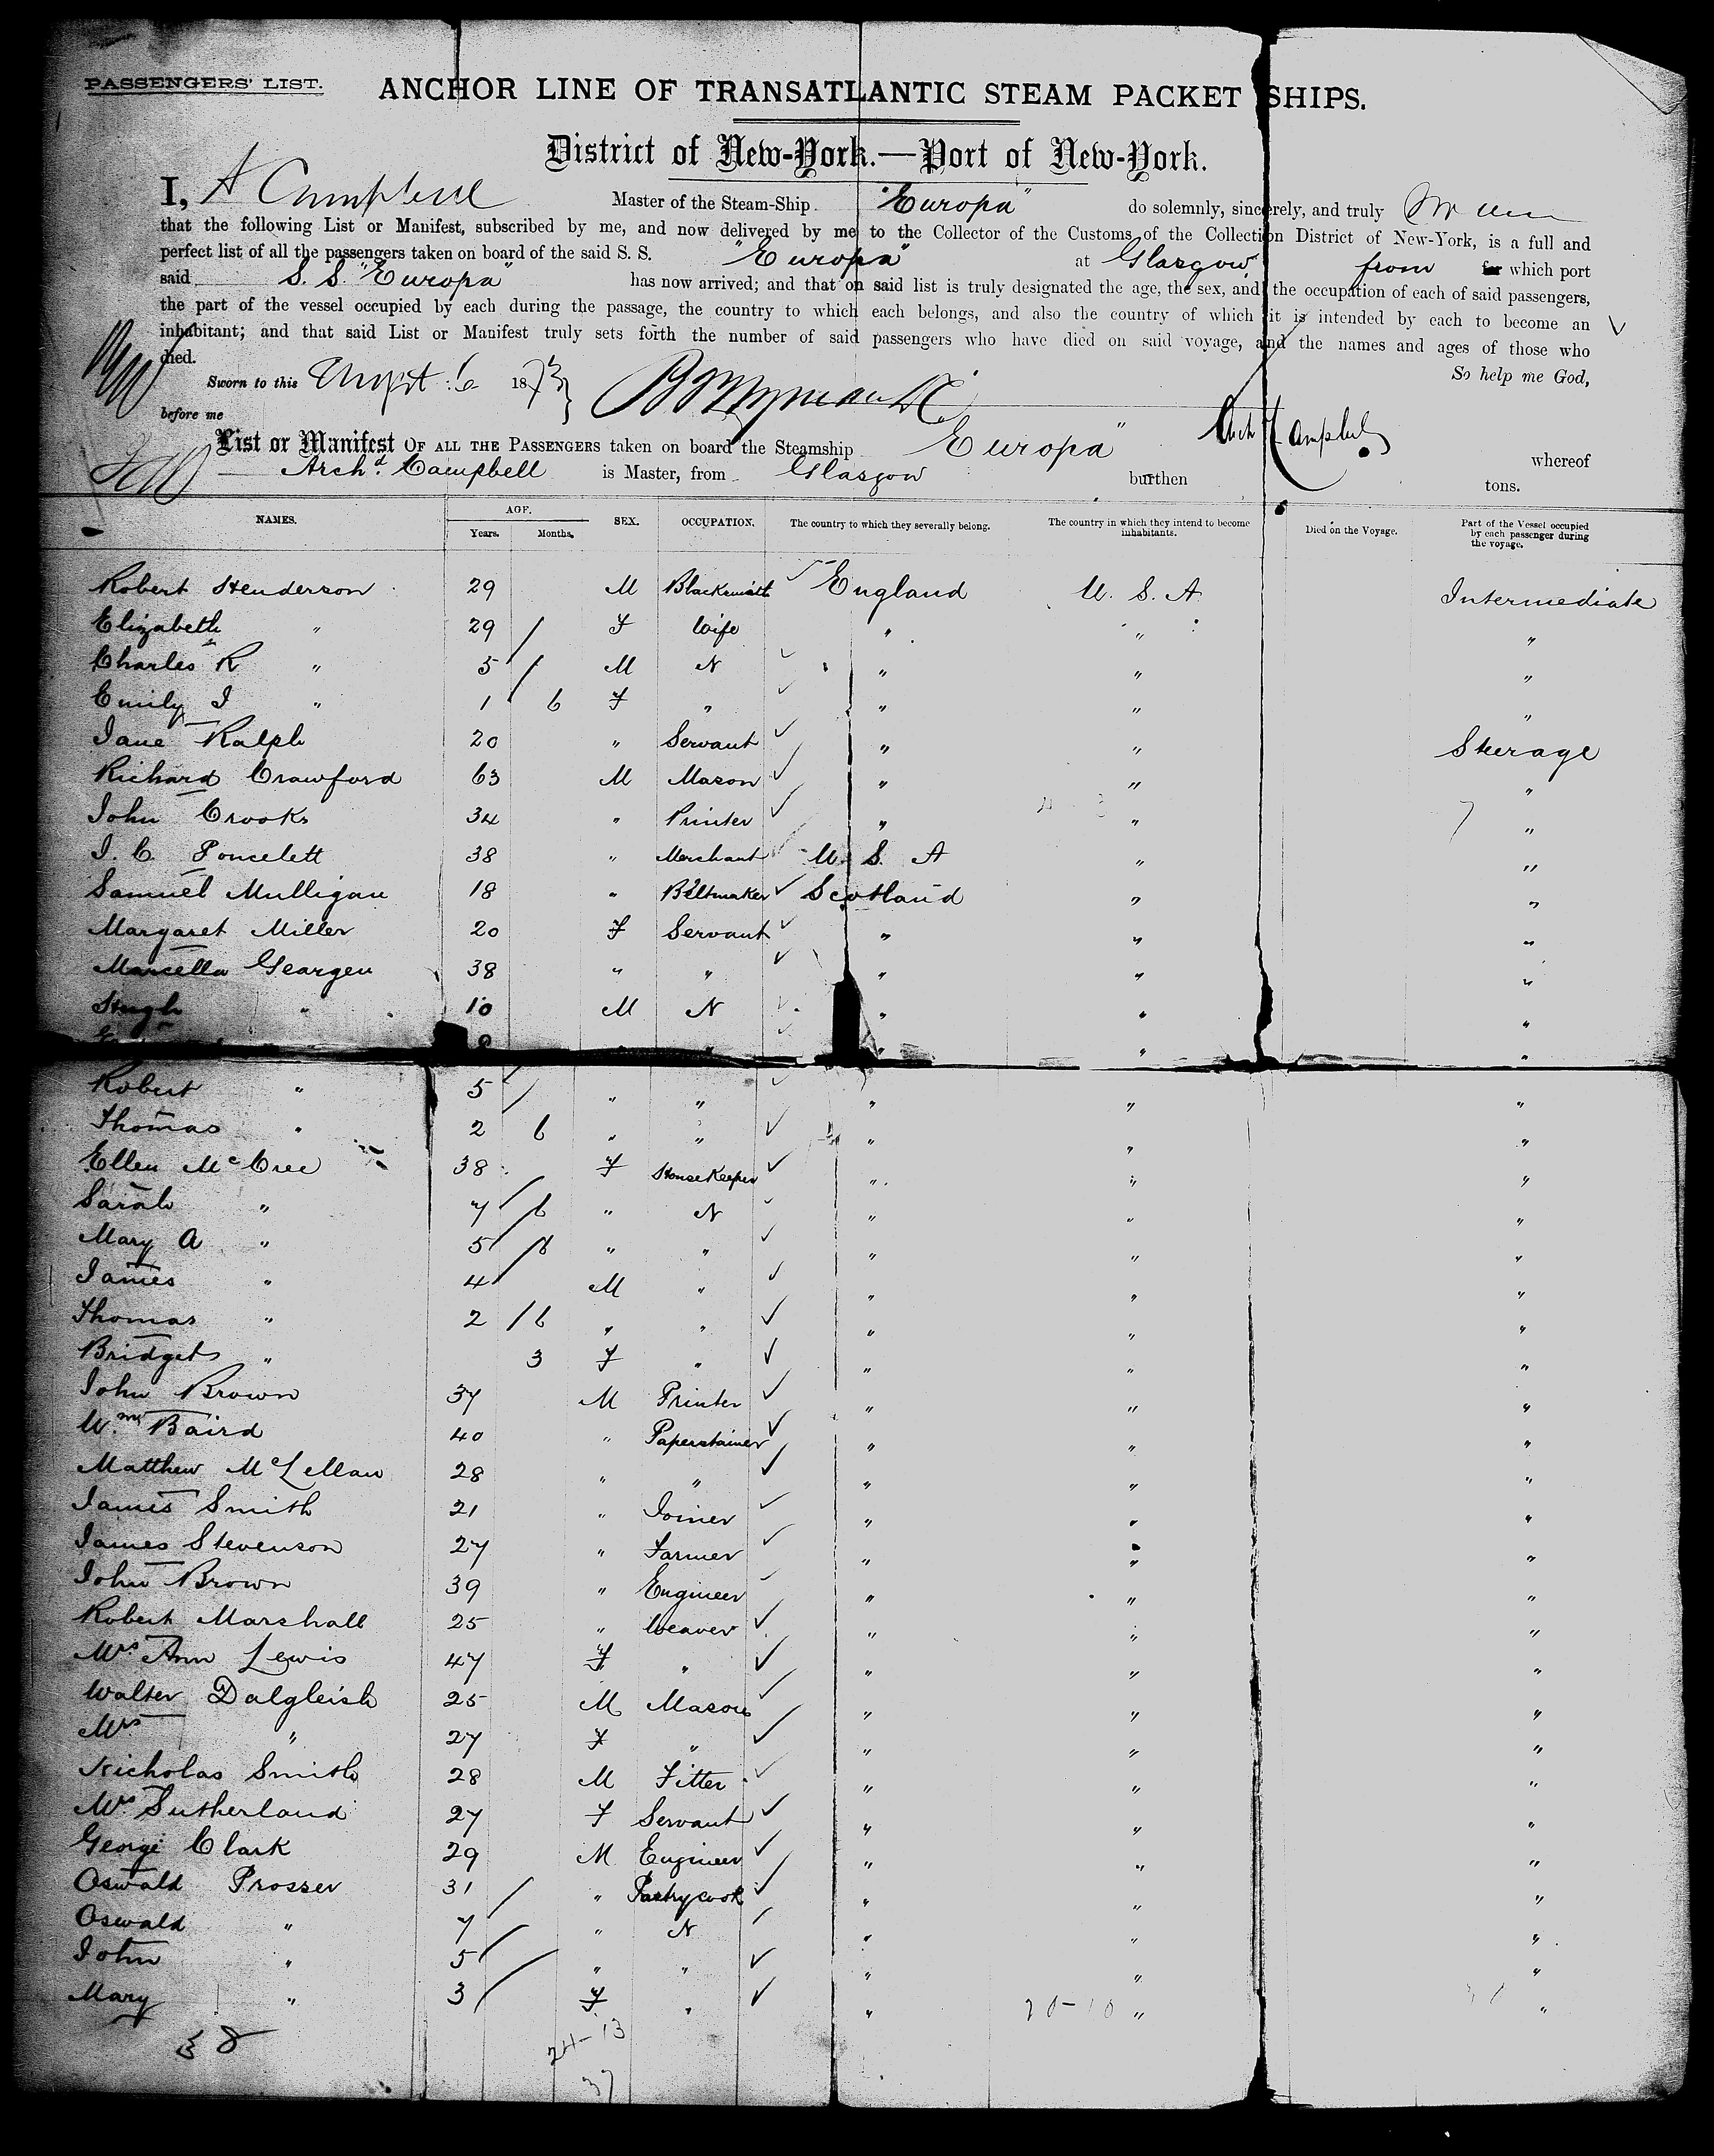 PASSENGERS' LIST.
ANCHOR LINE OF TRANSATLANTIC STEAM PACKET SHIPS.
District of New-York.—Port of New-York.
I, A Campbell Master of the Steam-Ship "Europa" do solemnly, sincerely, and truly
that the following List or Manifest, subscribed by me, and now delivered by me to the Collector of the Customs of the Collection District of New-York, is a full and
perfect list of all the passengers taken on board of the said S. S. "Europa" at Glasgow from for which port
said S. S. "Europa" has now arrived; and that on said list is truly designated the age, the sex, and the occupation of each of said passengers,
the part of the vessel occupied by each during the passage, the country to which each belongs, and also the country of which it is intended by each to become an
inhabitant; and that said List or Manifest truly sets forth the number of said passengers who have died on said voyage, and the names and ages of those who
died.
So help me God,
Sworn to this August 6 1873
before me
Arch Campbell
List or Manifest OF ALL THE PASSENGERS taken on board the Steamship Europa"
Archd. Campbell is Master, from Glasgow burthen whereof tons.
NAMES. AGE. Years. Months. SEX. OCCUPATION. The country to which they severally belong. The country in which they intend to become inhabitants. Died on the Voyage. Part of the Vessel occupied by each passenger during the voyage.
Robert Henderson 29 M Blacksmith England U. S. A Intermediate
Elizabeth " 29 F Wife " " "
Charles R " 5 M N " " "
Emily J " 1 6 F " " " "
Jane Ralph 20 " Servant " " Steerage
Richard Crawford 63 M Mason " " "
John Crooks 34 " Printer " " "
J. C. Poncelett 38 " Merchant U. S. A " "
Samuel Mulligan 18 " Beltmaker Scotland " "
Margaret Miller 20 F Servant " " "
Marcella Geargen 38 " " " " "
Hugh " 10 M N " " "
Robert " 5 " " " " "
Thomas " 2 6 " " " " "
Ellen McCree 38 F HouseKeeper " " "
Sarah " 7 6 " N " " "
Mary A " 5 6 " " " " "
James " 4 M " " " "
Thomas " 2 6 " " " " "
Bridget " 3 F " " " "
John Brown 37 M Printer " " "
Wm. Baird 40 " Paperstainer " " "
Matthew McLellan 28 " " " " "
James Smith 21 " Joiner " " "
James Stevenson 27 " Farmer " " "
John Brown 39 " Engineer " " "
Robert Marshall 25 " Weaver " " "
Mrs Ann Lewis 47 F " " " "
Walter Dalgleish 25 M Mason " " "
Mrs " 27 F " " " "
Nicholas Smith 28 M Fitter " " "
Mrs Sutherland 27 F Servant " " "
George Clark 29 M Engineer " " "
Oswald Prosser 31 " Pastrycook " " "
Oswald " 7 " N " " "
John " 5 " " " " "
Mary " 3 F " " " "
38 24-13
37